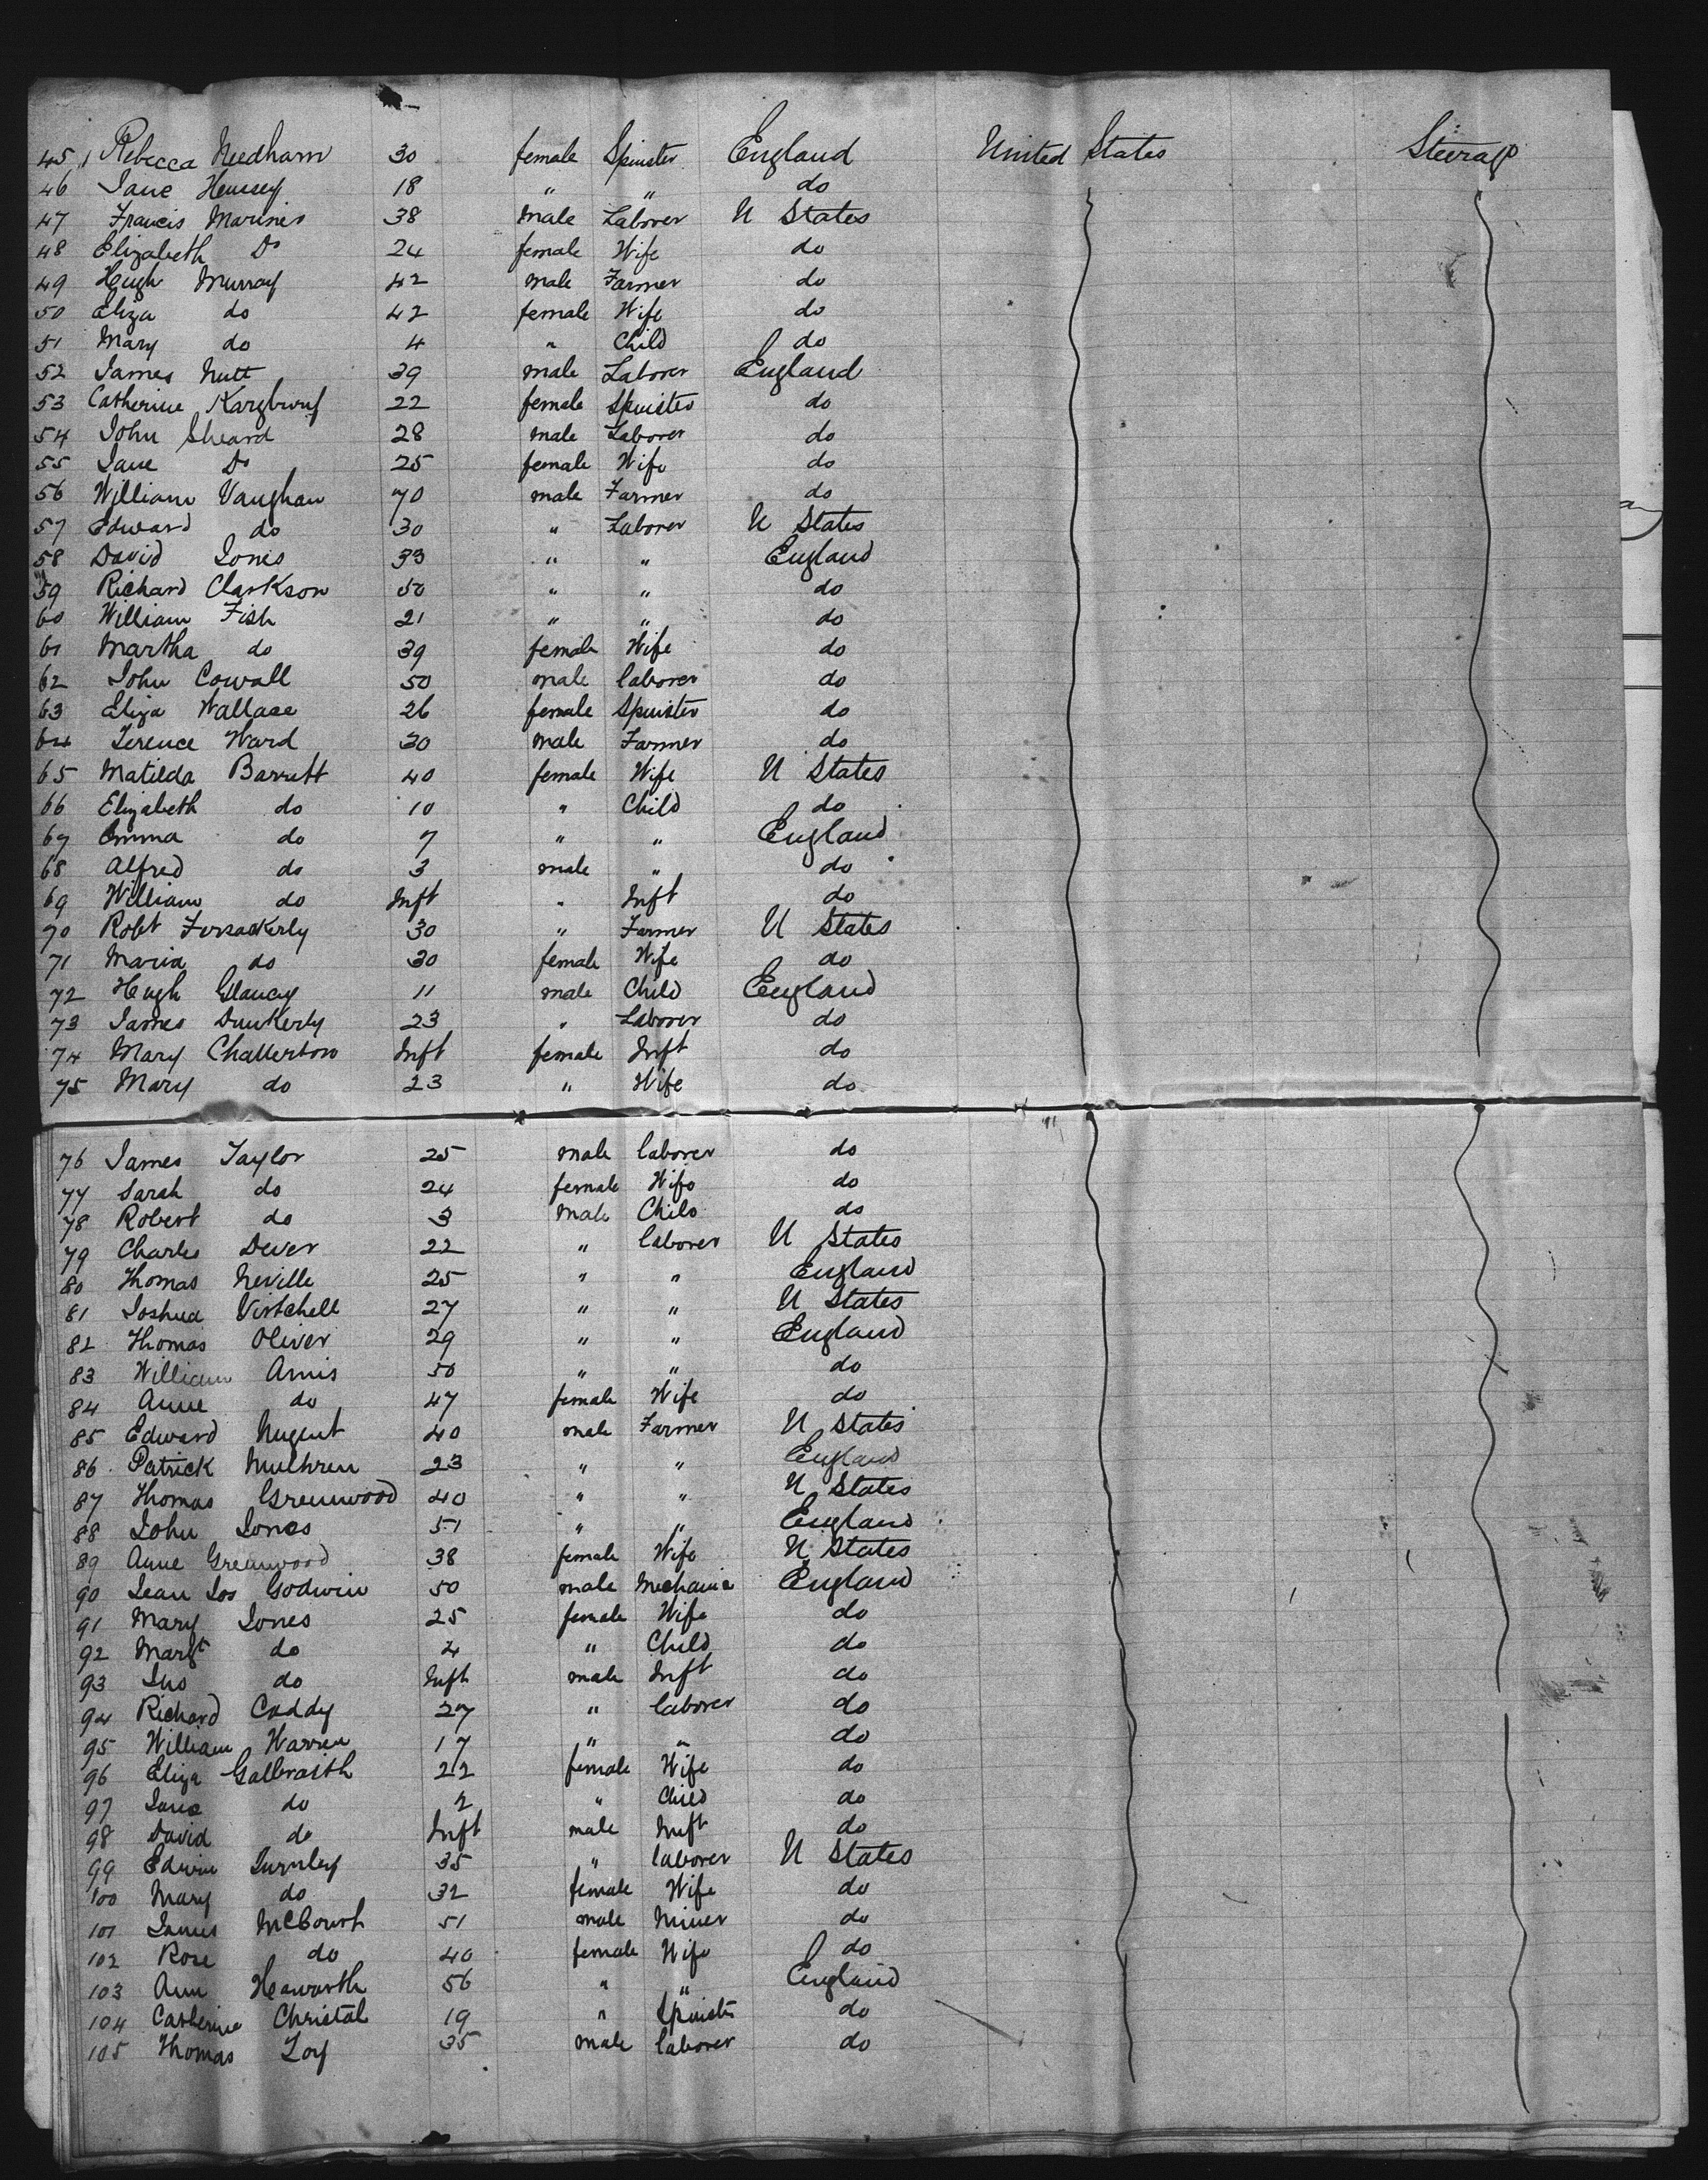 45 Rebecca Needham 30 female Spinster England United States Steerage
46 Jane 18 " " do
47 Francis Mariner 38 male Laborer U States
48 Elizabeth Do 24 female Wife do
49 Hugh Murray 42 male Farmer do
50 Eliza do 42 female Wife do
51 Mary do 4 " Child do
52 James Nutt 39 male Laborer England
53 Catherine 22 female Spinster do
54 John Sheard 28 male Laborer do
55 Jane Do 25 female Wife do
56 William Vaughan 70 male Farmer do
57 Edward do 30 " Laborer U States
58 David Jones 33 " " England
59 Richard Clarkson 50 " " do
60 William Fish 21 " " do
61 Martha do 39 female Wife do
62 John Cowall 50 male laborer do
63 Eliza Wallace 26 female Spinster do
64 Terence Ward 30 male Farmer do
65 Matilda Barrett 40 female Wife U States
66 Elizabeth do 10 " Child do
67 Emma do 7 " " England
68 Alfred do 3 male " do
69 William do Inft " Inft do
70 Robt 30 " Farmer U States
71 Maria do 30 female Wife do
72 Hugh Glancy 11 male Child England
73 James Dunkerly 23 " Laborer do
74 Mary Challerton Inft female Inft do
75 Mary do 23 " Wife do
76 James Taylor 25 male laborer do
77 Sarah do 24 female Wife do
78 Robert do 3 male Child do
79 Charles Dever 22 " laborer U States
80 Thomas Neville 25 " " England
81 Joshua 27 " " U States
82 Thomas Oliver 29 " " England
83 William Amis 50 " " do
84 Anne do 47 female Wife do
85 Edward Nugent 40 male Farmer U States
86 Patrick 23 " " England
87 Thomas Greenwood 40 " " U States
88 John Jones 51 " " England
89 Anne Greenwood 38 female Wife U States
90 Jean Jos Godwin 50 male Mechanic England
91 Mary Jones 25 female Wife do
92 Margt do 4 " Child do
93 Jno do Inft male Inft do
94 Richard Caddy 27 " laborer do
95 William Warren 17 " " do
96 Eliza Galbraith 22 female Wife do
97 Jane do 2 " Child do
98 David do Inft male Inft do
99 Edwin 35 " laborer U States
100 Mary do 32 female Wife do
101 James McCourt 51 male Miner do
102 Rose do 40 female Wife do
103 Ann Haworth 56 " " England
104 Catherine Christal 19 " Spinster do
105 Thomas 35 male laborer do